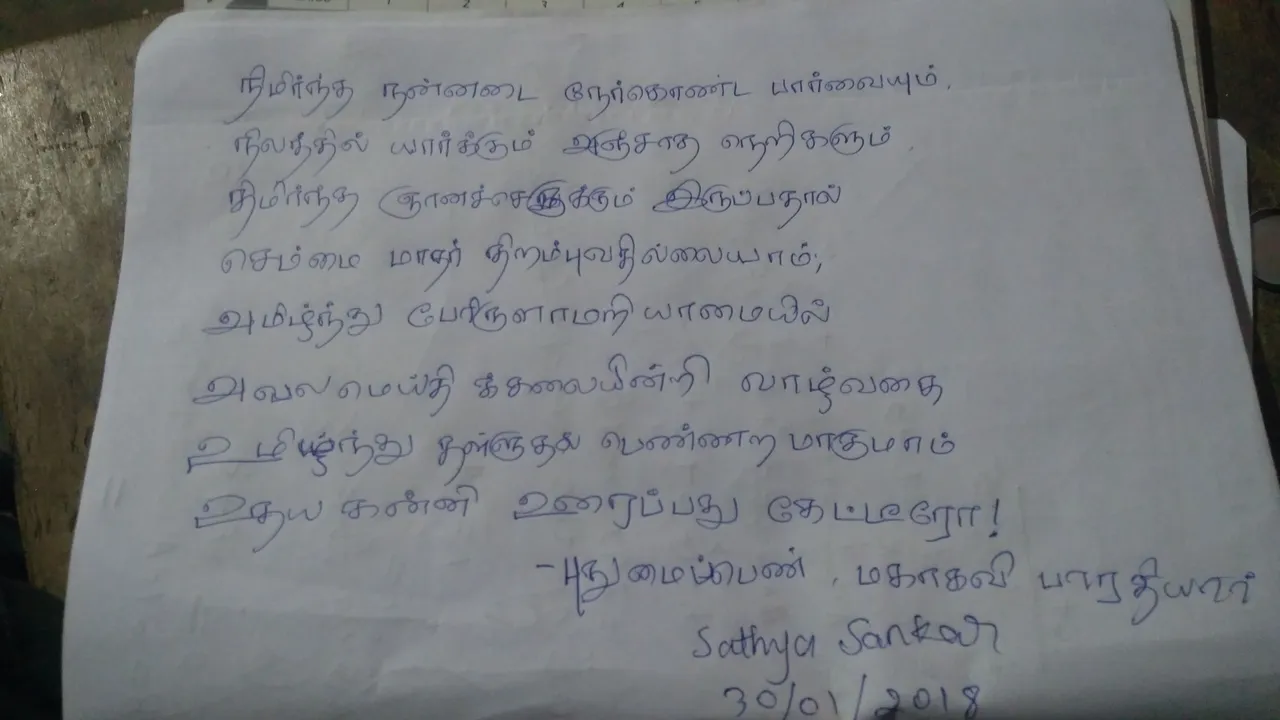 நிமிர்ந்த நன்னடை நேர்கொண்ட பார்வையும்,
நிலத்தில் யார்க்கும் அஞ்சாத நெறிகளும்,
திமிர்ந்த ஞானச்செருக்கும் இருப்பதால்
செம்மை மாதர் திறம்புவதில்லையாம்;
அமிழ்ந்து பேரிருளாமறியாமையில்
அவலமெய்தி க்கலையின்றி வாழ்வகை
உமிழ்ந்து தள்ளுதல் பெண்ணறமாகுமாம்
உதய கன்னி உரைப்பது கேட்டீரோ!
- புதுமைப்பெண், மகாகவி பாரதியார்
Sathya Sankar
30/01/2018